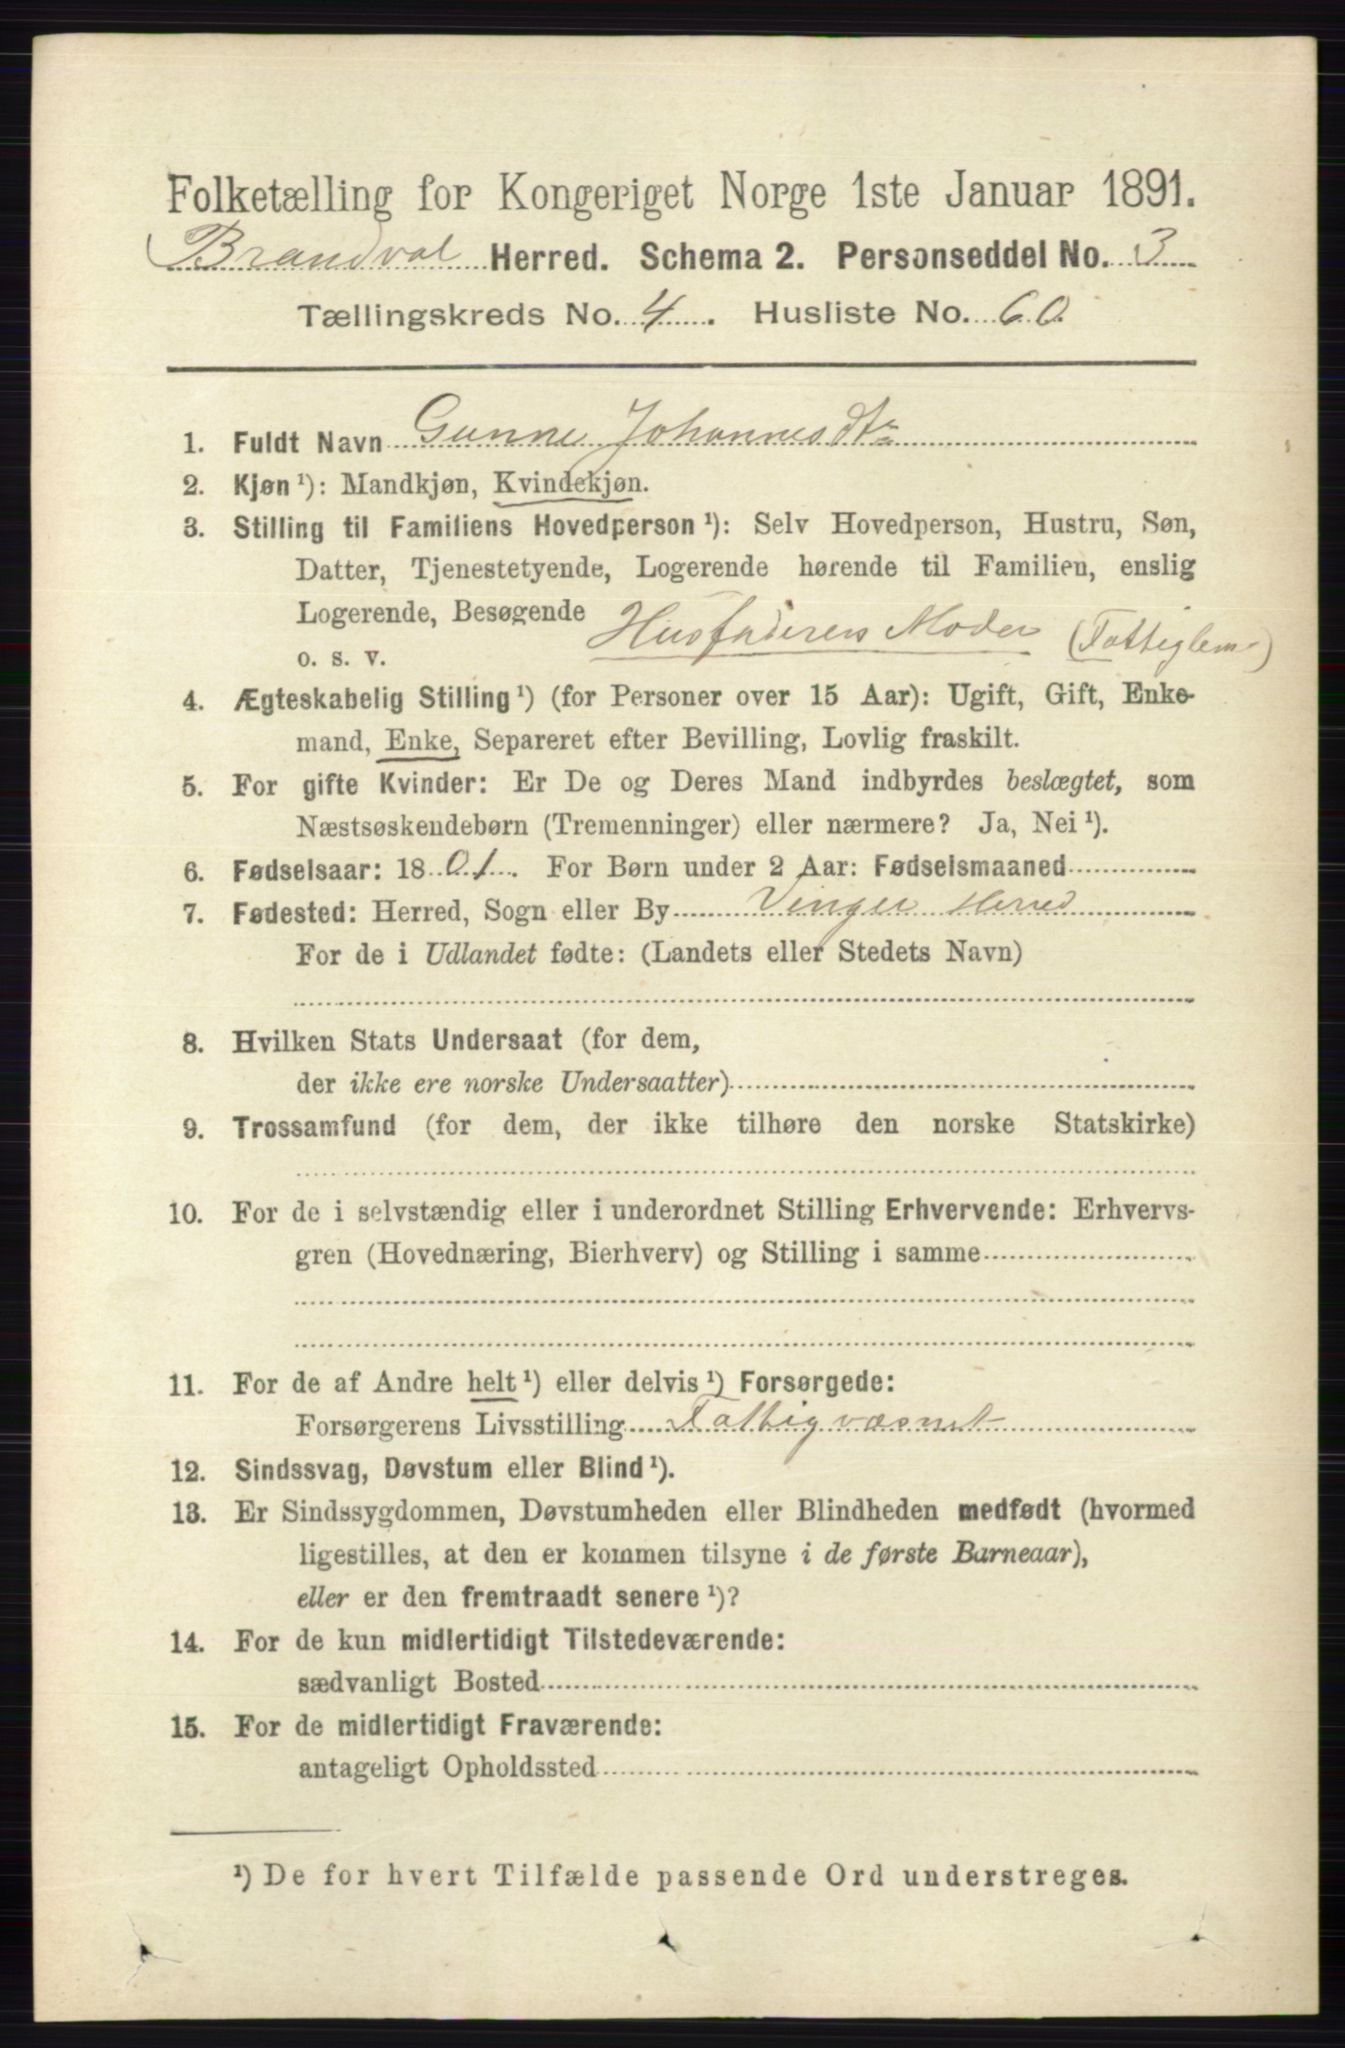 Folketælling for Kongeriget Norge 1ste Januar 1891.
Brandval Herred. Schema 2. Personseddel No. 3
Tællingskreds No. 4. Husliste No. 60
1. Fuldt Navn Gunne Johannesdtr
2. Kjøn ¹): Mandkjøn, Kvindekjøn.
3. Stilling til Familiens Hovedperson ¹): Selv Hovedperson, Hustru, Søn,
Datter, Tjenestetyende, Logerende hørende til Familien, enslig
Logerende, Besøgende
o. s. v. Husfaderens Moder (Fattiglem)
4. Ægteskabelig Stilling ¹) (for Personer over 15 Aar): Ugift, Gift, Enke-
mand, Enke, Separeret efter Bevilling, Lovlig fraskilt.
5. For gifte Kvinder: Er De og Deres Mand indbyrdes beslægtet, som
Næstsøskendebørn (Tremenninger) eller nærmere? Ja, Nei ¹).
6. Fødselsaar: 1801. For Børn under 2 Aar: Fødselsmaaned
7. Fødested: Herred, Sogn eller By Vinger Herred
For de i Udlandet fødte: (Landets eller Stedets Navn)
8. Hvilken Stats Undersaat (for dem,
der ikke ere norske Undersaatter)
9. Trossamfund (for dem, der ikke tilhøre den norske Statskirke)
10. For de i selvstændig eller i underordnet Stilling Erhvervende: Erhvervs-
gren (Hovednæring, Bierhverv) og Stilling i samme
11. For de af Andre helt ¹) eller delvis ¹) Forsørgede:
Forsørgerens Livsstilling Fattigvæsnet
12. Sindssvag, Døvstum eller Blind ¹).
13. Er Sindssygdommen, Døvstumheden eller Blindheden medfødt (hvormed
ligestilles, at den er kommen tilsyne i de første Barneaar),
eller er den fremtraadt senere ¹)?
14. For de kun midlertidigt Tilstedeværende:
sædvanligt Bosted
15. For de midlertidigt Fraværende:
antageligt Opholdssted
¹) De for hvert Tilfælde passende Ord understreges.